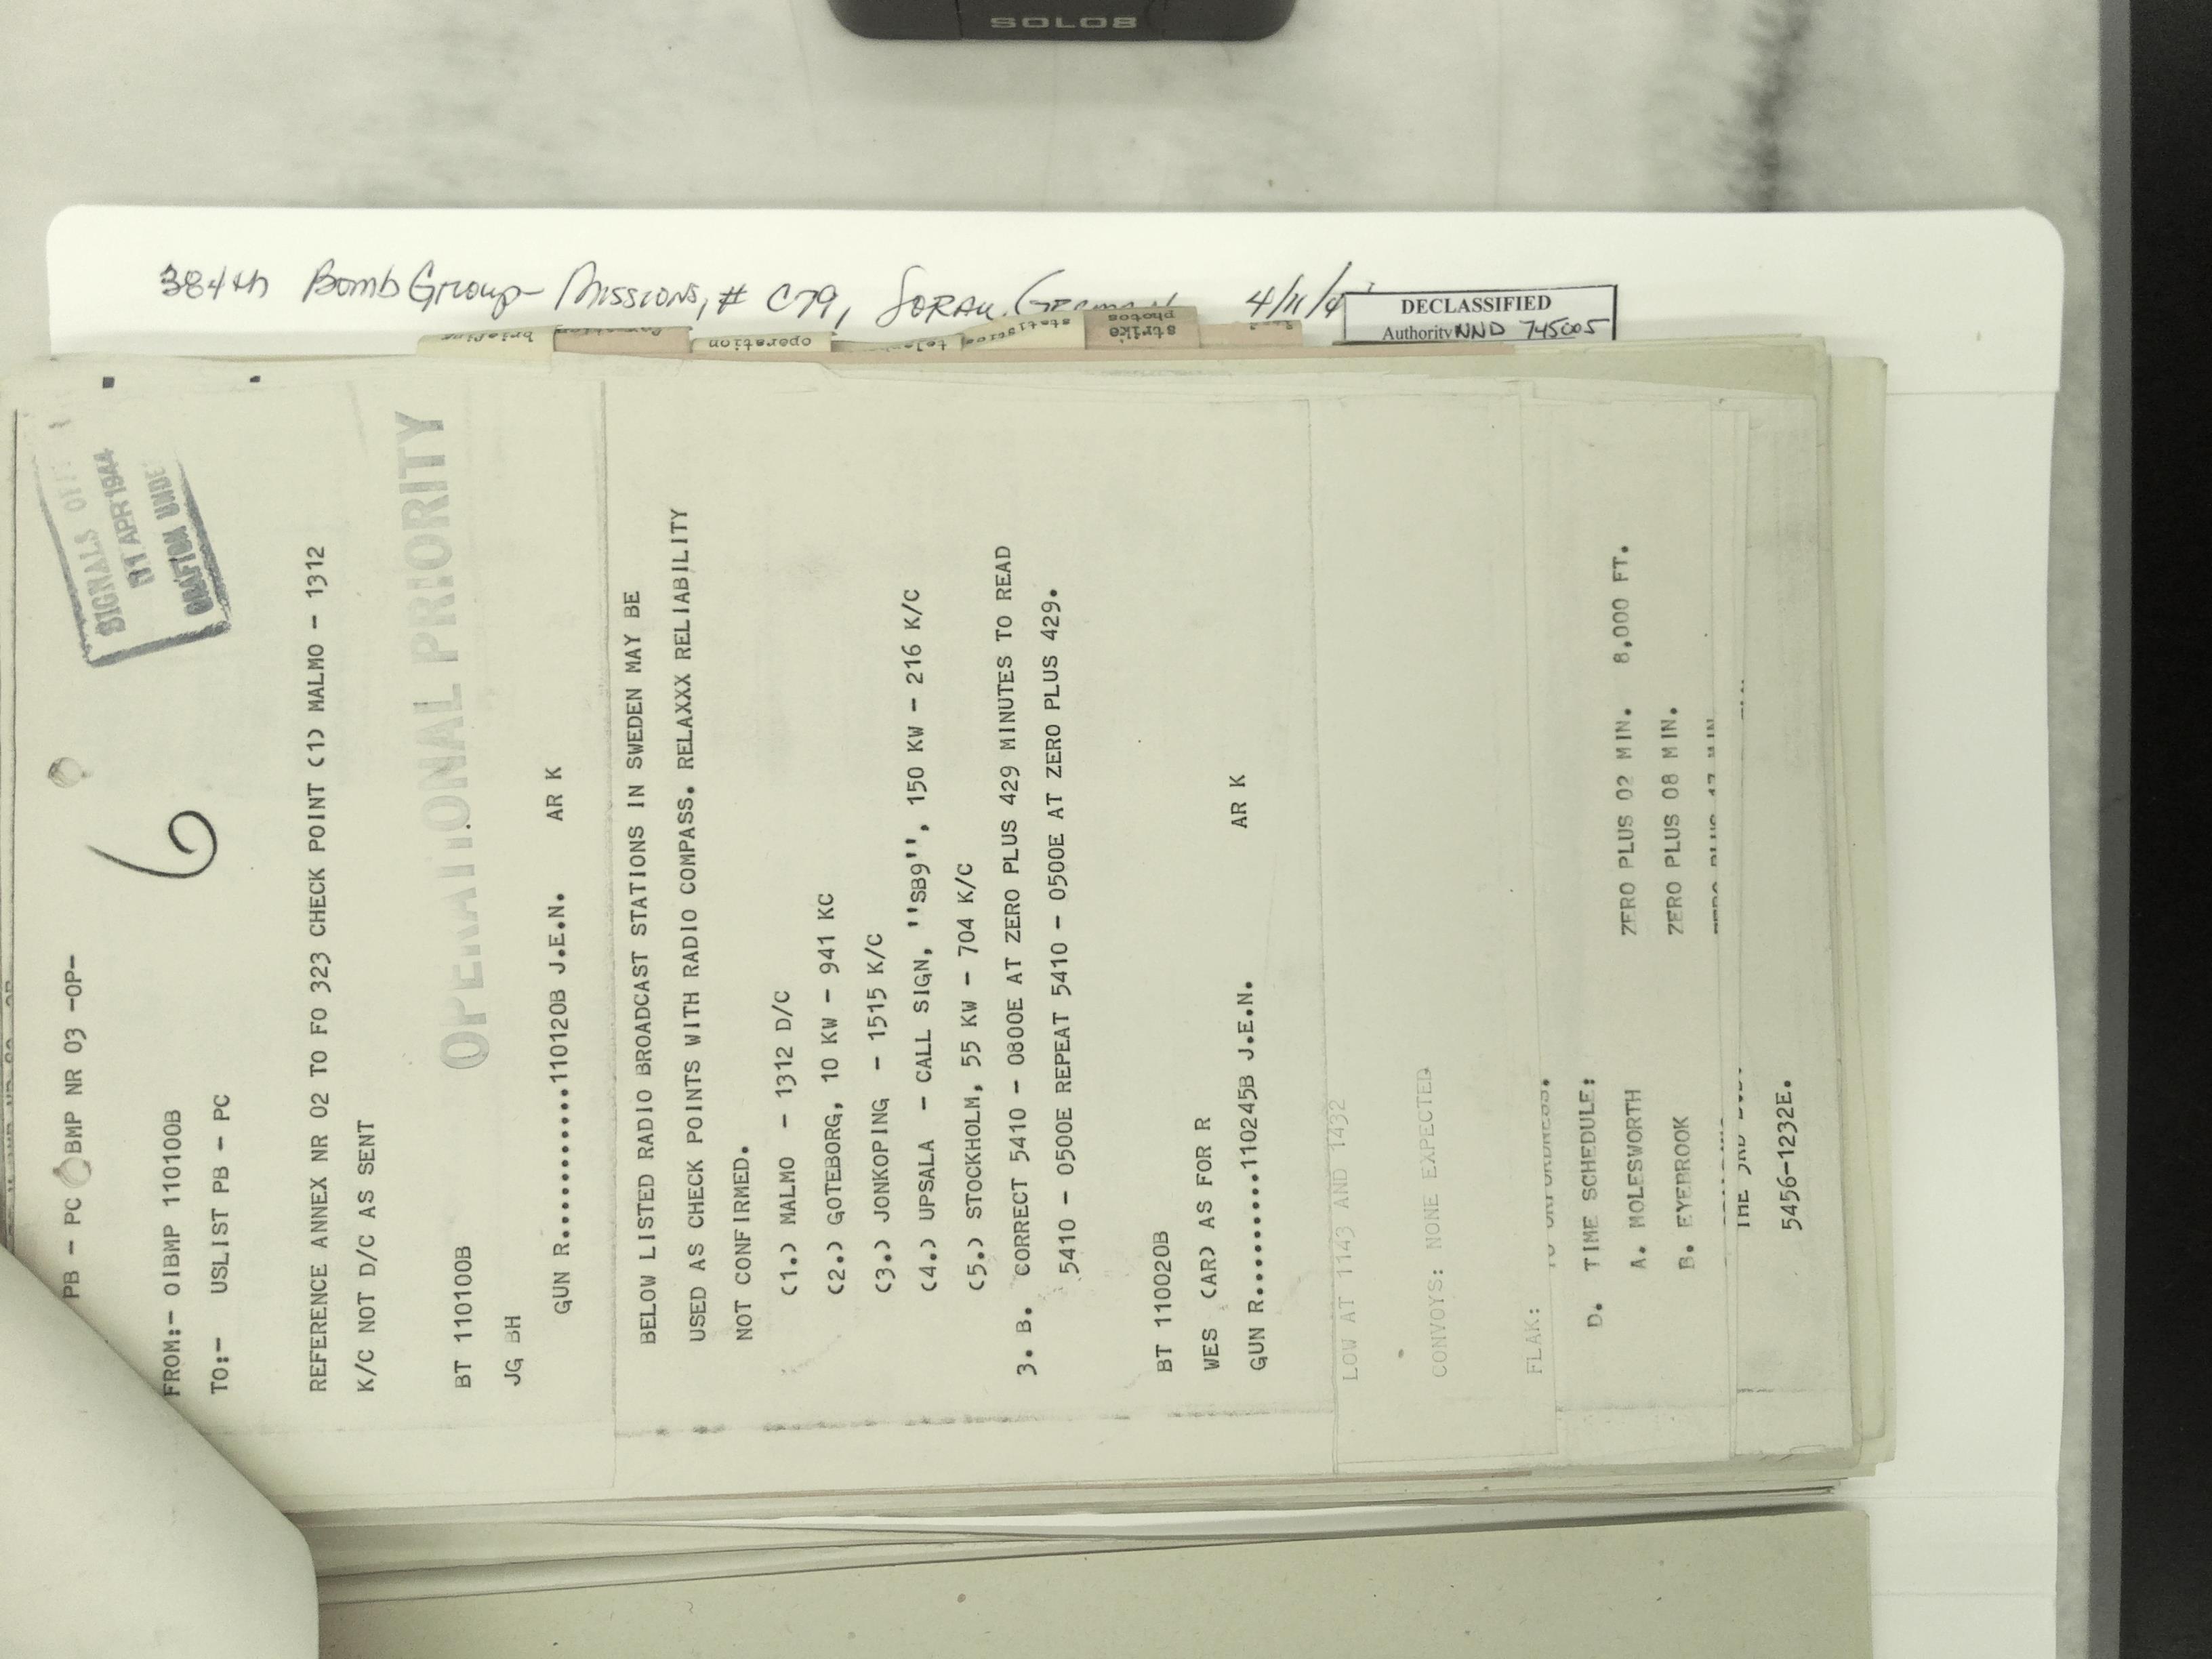 SOLO8
384th Bomb Group Missions, # C79, SORAU, 4/11/4
DECLASSIFIED
Authority NND 745005
briefing
operation
statistics
strike
photos
SIGNALS
11 APR 1944
GRAFTON UNDE
6
PB - PC BMP NR 03 -OP-
FROM:- OIBMP 110100B
TO:- USLIST PB - PC
REFERENCE ANNEX NR 02 TO FO 323 CHECK POINT (1) MALMO - 1312
K/C NOT D/C AS SENT
OPERATIONAL PRIORITY
BT 110100B
JG BH
GUN R..........110120B J.E.N. AR K
BELOW LISTED RADIO BROADCAST STATIONS IN SWEDEN MAY BE
USED AS CHECK POINTS WITH RADIO COMPASS. RELAXXX RELIABILITY
NOT CONFIRMED.
(1.) MALMO - 1312 D/C
(2.) GOTEBORG, 10 KW - 941 KC
(3.) JONKOPING - 1515 K/C
(4.) UPSALA - CALL SIGN, ''SB9'', 150 KW - 216 K/C
(5.) STOCKHOLM, 55 KW - 704 K/C
3. B. CORRECT 5410 - 0800E AT ZERO PLUS 429 MINUTES TO READ
5410 - 0500E REPEAT 5410 - 0500E AT ZERO PLUS 429.
BT 110020B
WES (AR) AS FOR R
GUN R.........110245B J.E.N. AR K
LOW AT 1143 AND 1432
CONVOYS: NONE EXPECTED
FLAK:
D. TIME SCHEDULE:
A. MOLESWORTH ZERO PLUS 02 MIN. 8,000 FT.
B. EYEBROOK ZERO PLUS 08 MIN.
THE 3RD
5456-1232E.